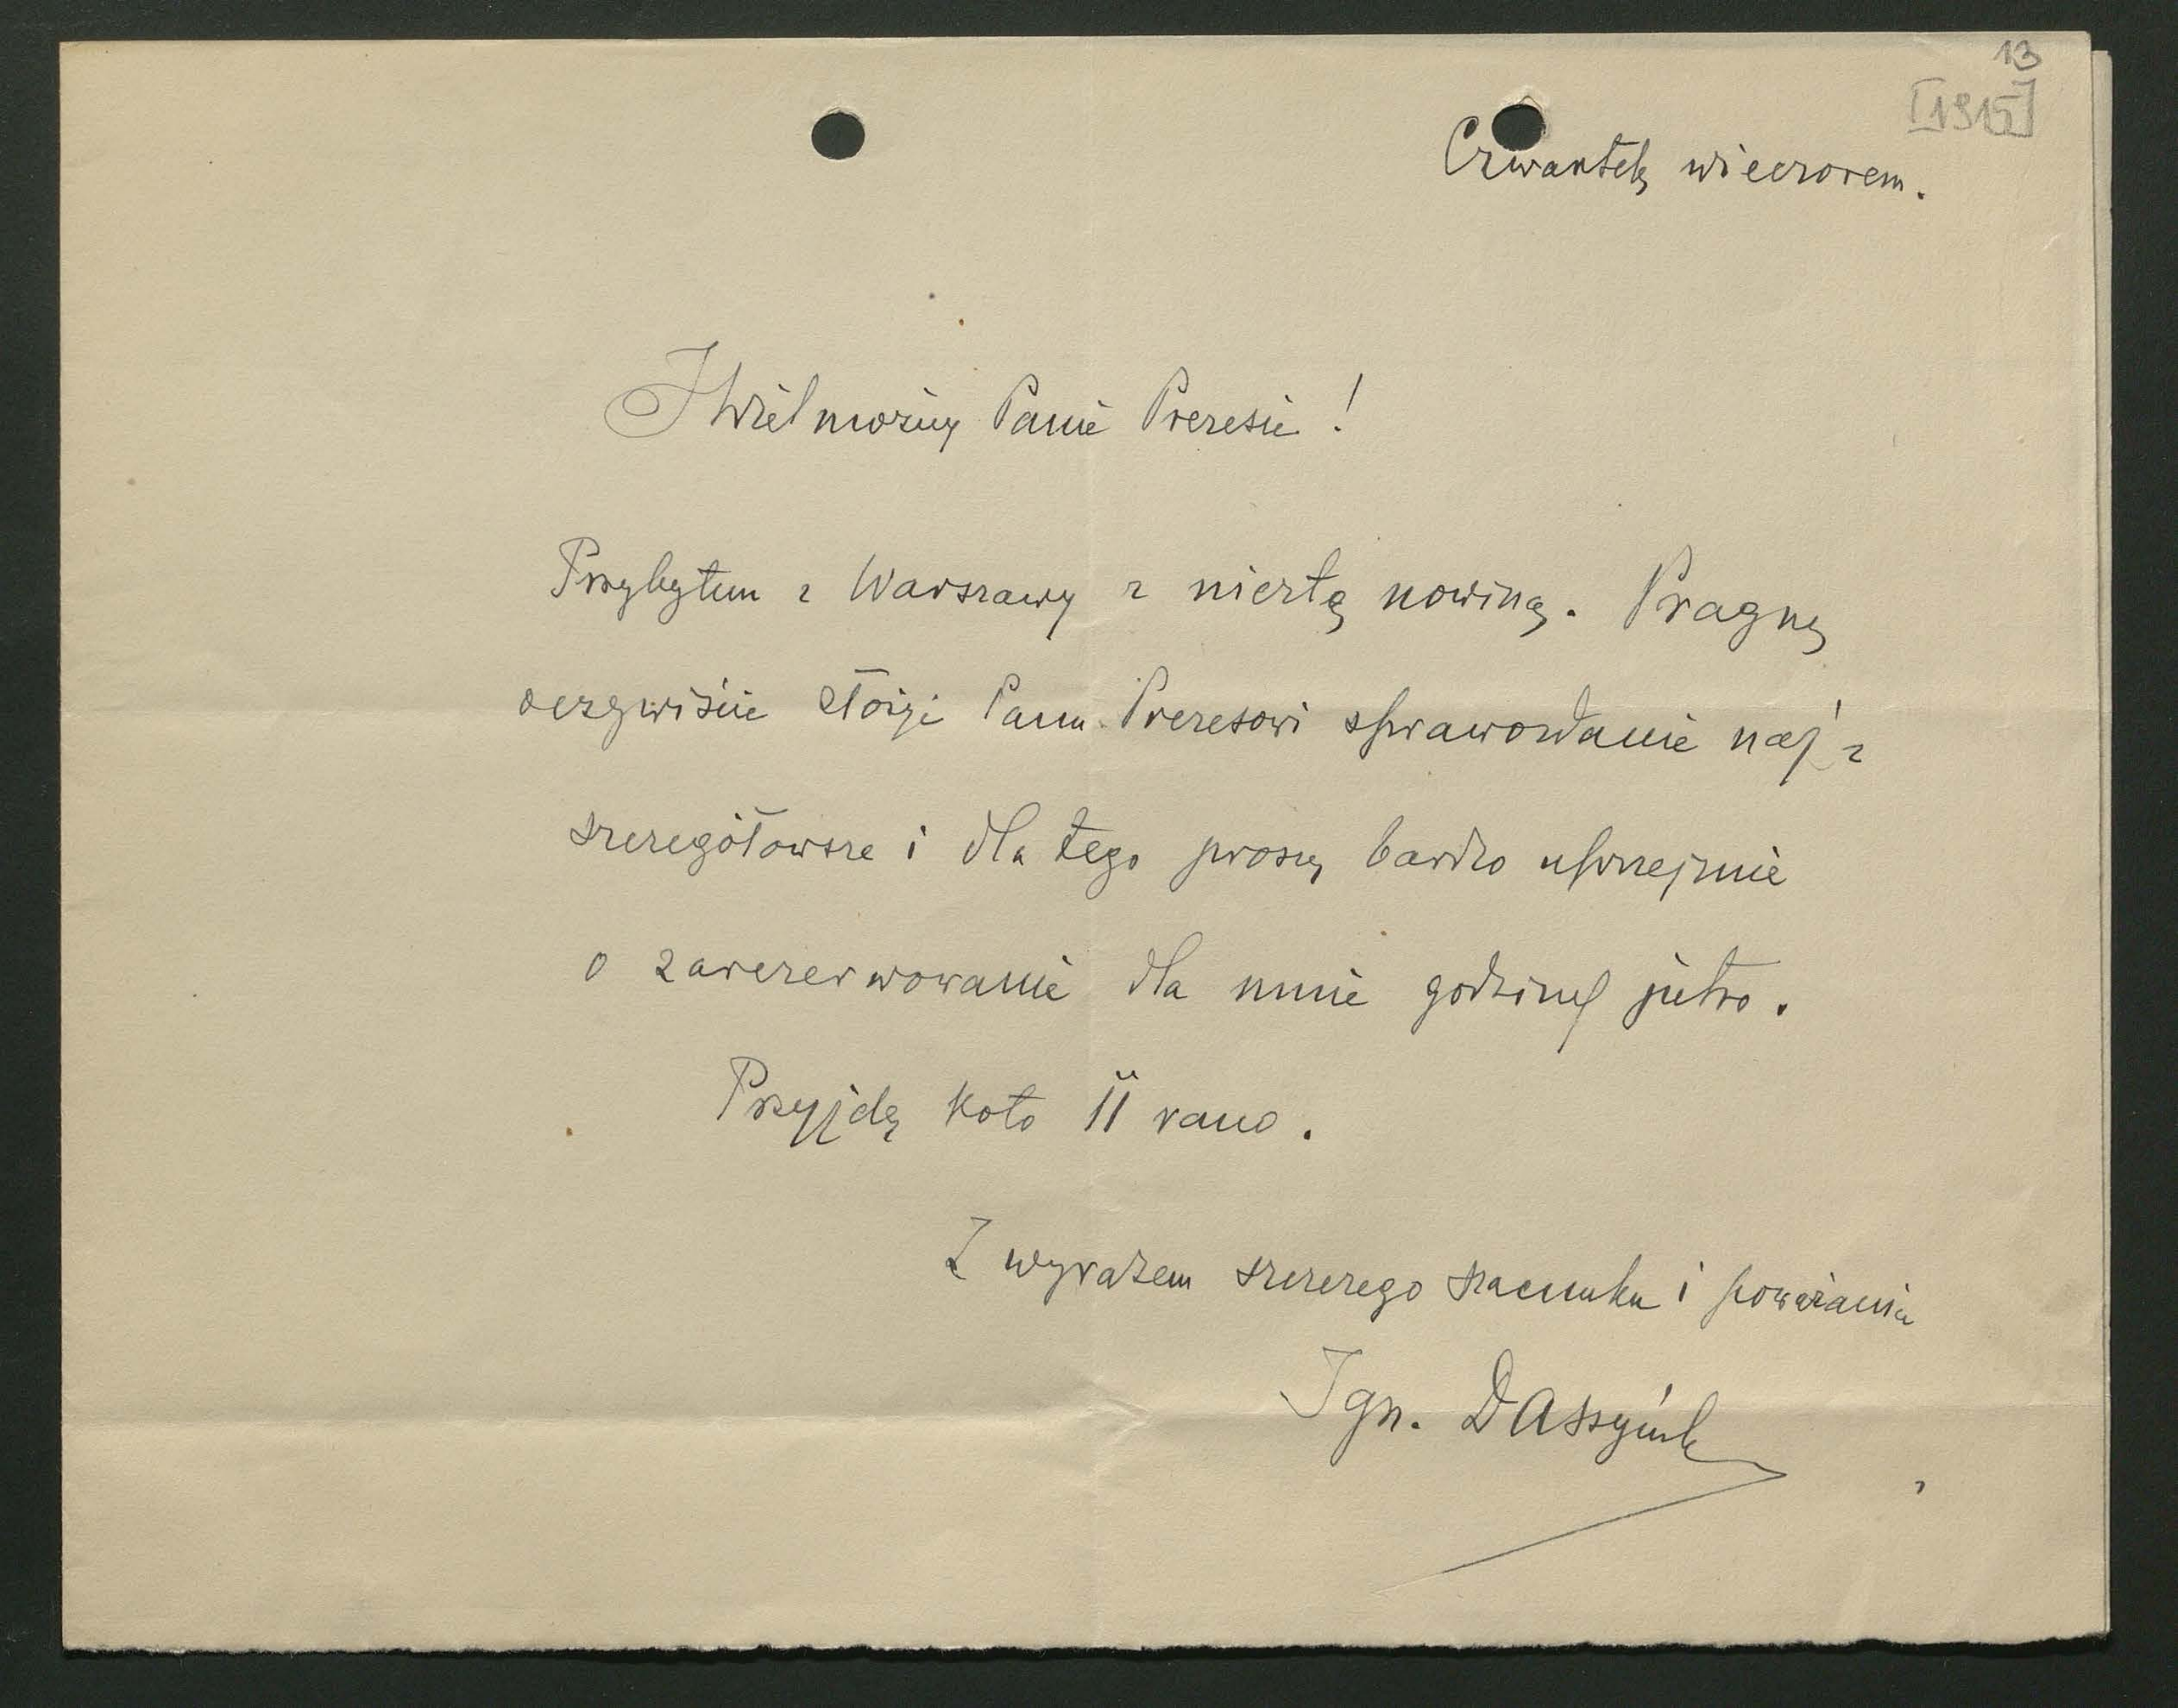 13
[1915]
Czwartek wieczorem.
JWielmożny Panie Prezesie!
Przybyłem z Warszawy z niezłą nowiną. Pragnę
oczywiście złożyć Panu Prezesowi sprawozdanie naj-
szczegółowsze i dla tego proszę bardzo uprzejmie
o zarezerwowanie dla mnie godziny jutro.
Przyjdę koło 11 rano.
Z wyrazem szczerego szacunku i poważania
Ign. Daszyński